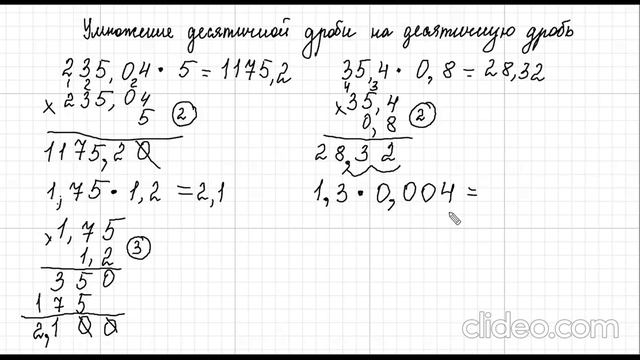 Умножение десятичной дроби на десятичную дробь
235,04 · 5 = 1175,2
1 2 2
× 235,04
5 (2)
1175,20
1,75 · 1,2 = 2,1
× 1,75
1,2 (3)
350
175
2,100
35,4 · 0,8 = 28,32
4 3
× 35,4
0,8 (2)
28,32
1,3 · 0,004 =
clideo.com